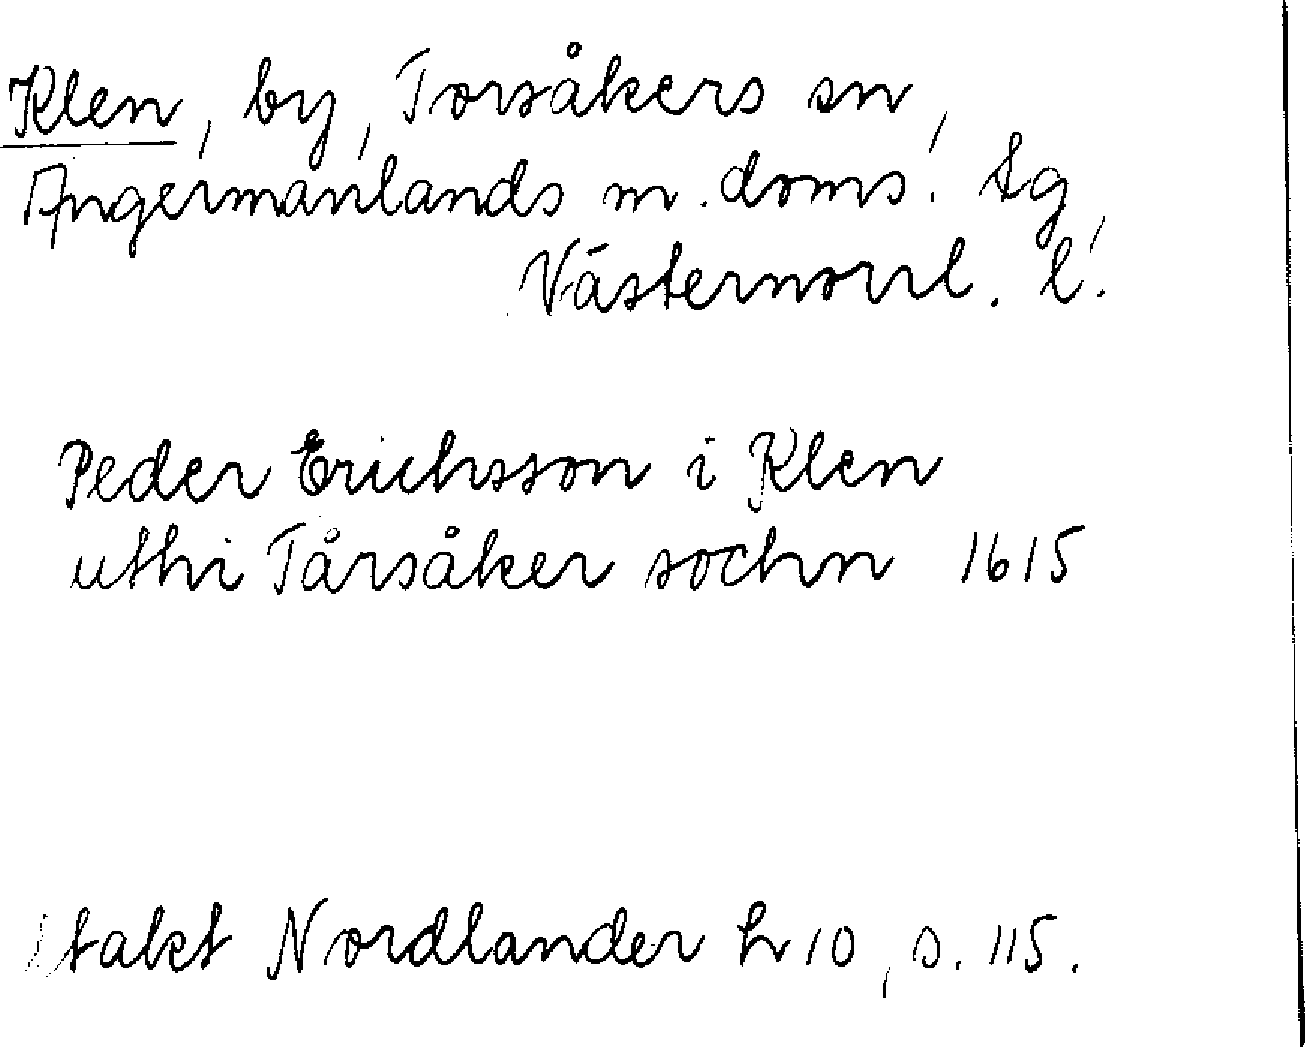 Klen, by, Torsåkers sn,
Ångermanlands m. doms. tg,
Västernorrl. l.
Peder Erichsson i Klen
uthi Tårsåker sochn 1615
Nordlander h 10, s. 115.